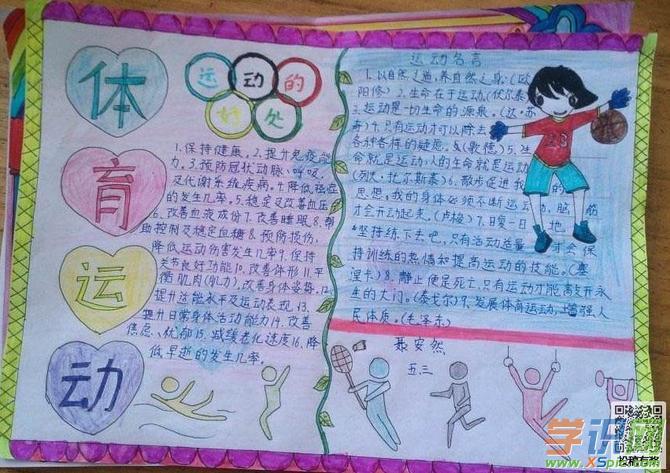 体
育
运
动
运动的
好处
1.保持健康。2.提升免疫能
力.3.预防冠状动脉、呼吸
及代谢系统疾病。4.降低癌症
的发生几率。5.稳定及改善血压
6.改善血液成份7.改善睡眠8.帮
助控制及稳定血糖8.预防损伤,
降低运动伤害发生几率。9.保持
关节良好功能10.改善体形11.平
衡肌肉(肌力).改善身体姿势.12
提升这能水平及运动表现.13
提升日常身体活动能力14.改善
焦虑、忧郁15.减缓老化速度16.降
低早逝的发生几率。
运动名言
1.以自然之道,养自然之身。(欧
阳修)2.生命在于运动。(伏尔泰)
3.运动是一切生命的源泉。(达·芬
奇)4.只有运动才可以除去
各种各样的疑虑。(歌德)5.生
命就是运动,人的生命就是运动
(列夫·托尔斯泰)6.散步促进我的
思想,我的身体必须不断运动,脑筋
才会开动起来。(卢梭)7.日复一日地
坚持练下去吧,只有活动适量才会保
持训练的热情和提高运动的技能。(塞
涅卡)8.静止便是死亡,只有运动才能敲开永
生的大门。(泰戈尔)9.发展体育运动,增强人
民体质。(毛泽东)
聂安然
五.三
学识网
www.XSpic.com
投稿有奖